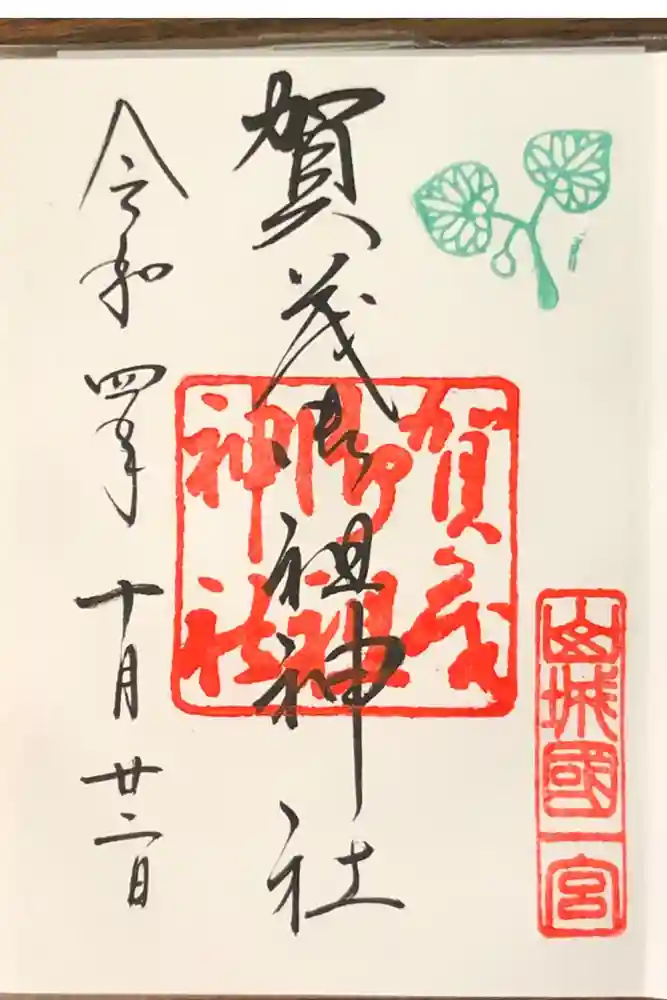 山城國一宮
賀茂御祖神社
賀茂
御祖
神社
令和四年十月廿二日